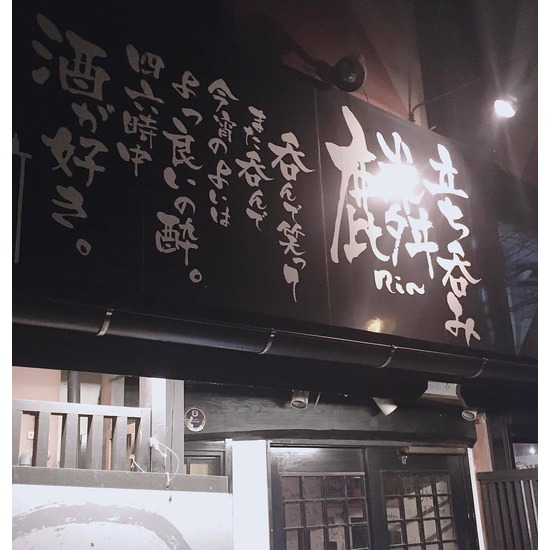 立ち呑み
麟
Rin
呑んで笑って
また呑んで
今宵のよいは
よつ良いの酔。
四六時中
酒が好き。